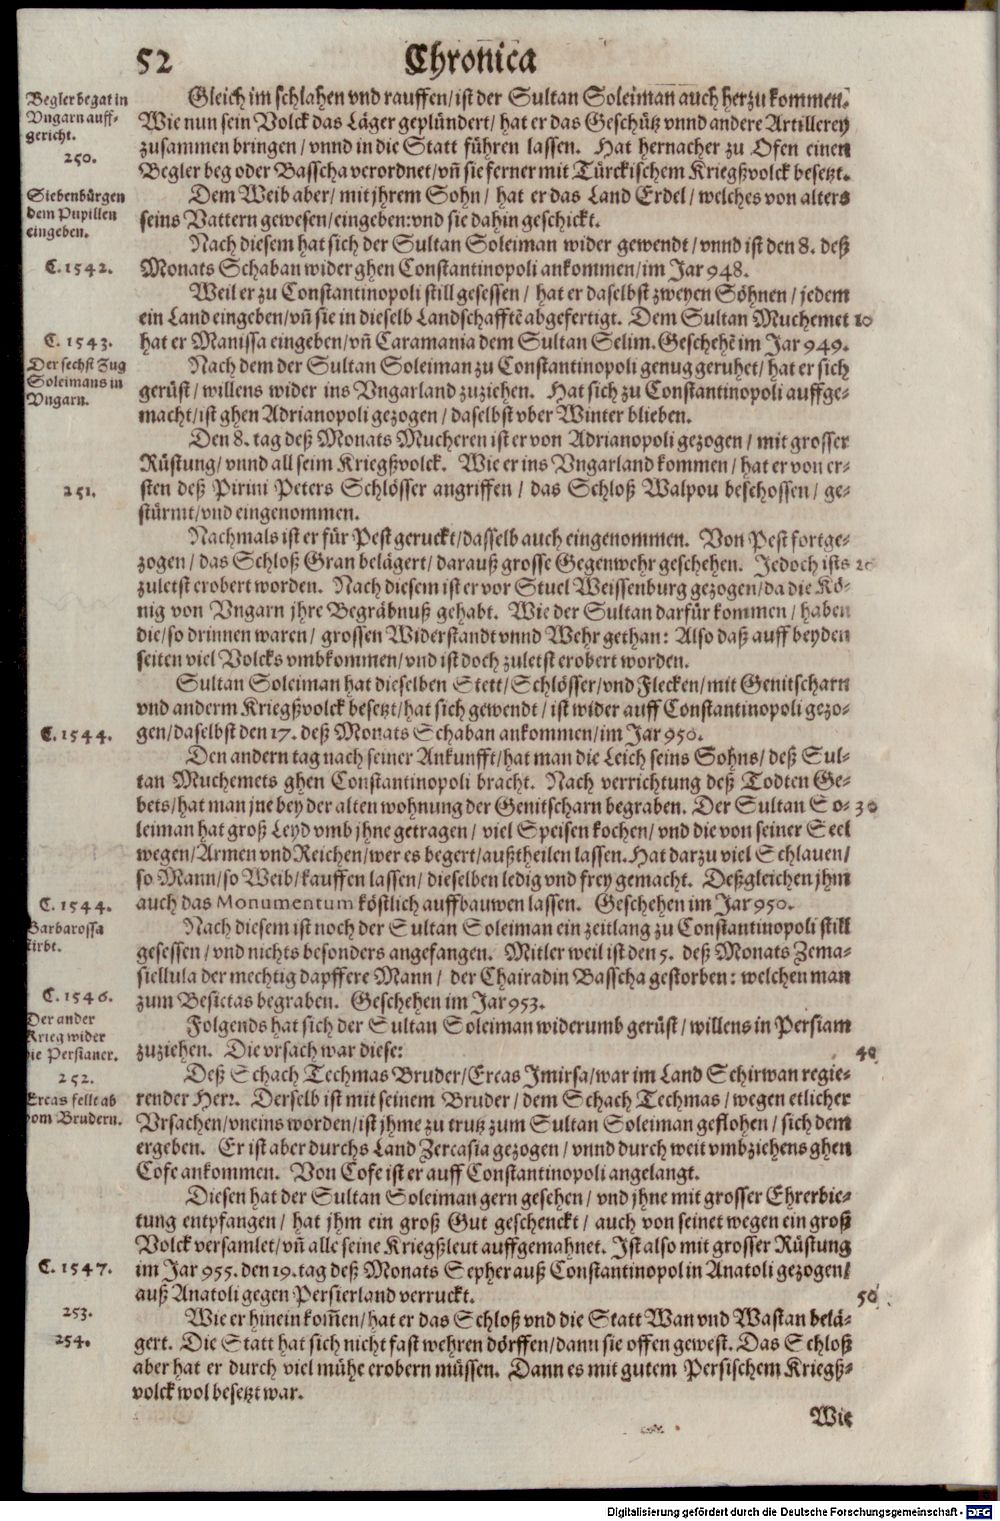 52 Chroñica
Begler begat in
Vngarn auff-
gericht.
250.
Gleich im schlahen vnd rauffen/ist der Sultan Soleiman auch herzu kommen.
Wie nun sein Volck das Läger geplündert/ hat er das Geschütz vnnd andere Artillerey
zusammen bringen / vnnd in die Statt führen lassen. Hat hernacher zu Ofen einen
Begler beg oder Basscha verordnet/vñ sie ferner mit Türckischem Kriegßvolck besetzt.
Siebenbürgen
dem Pupillen
eingeben.
Dem Weib aber/ mit jhrem Sohn/ hat er das Land Erdel/ welches von alters
seins Vattern gewesen/eingeben: vnd sie dahin geschickt.
Nach diesem hat sich der Sultan Soleiman wider gewendt/ vnnd ist den 8. deß
C. 1542.
Monats Schaban wider ghen Constantinopoli ankommen/im Jar 948.
Weil er zu Constantinopoli still gesessen / hat er daselbst zweyen Söhnen / jedem
ein Land eingeben/vñ sie in dieselb Landschafftẽ abgefertigt. Dem Sultan Muchemet 10
C. 1543.
hat er Manissa eingeben/vñ Caramania dem Sultan Selim. Geschehẽ im Jar 949.
Der sechst Zug
Soleimans in
Vngarn.
Nach dem der Sultan Soleiman zu Constantinopoli genug geruhet/ hat er sich
gerüst/ willens wider ins Vngarland zuziehen. Hat sich zu Constantinopoli auffge-
macht/ist ghen Adrianopoli gezogen/ daselbst vber Winter blieben.
Den 8. tag deß Monats Mucheren ist er von Adrianopoli gezogen / mit grosser
Rüstung/ vnnd all seim Kriegßvolck. Wie er ins Vngarland kommen/ hat er von er-
251.
sten deß Pirini Peters Schlösser angriffen / das Schloß Walpou beschossen/ ge-
stürmt/vnd eingenommen.
Nachmals ist er für Pest geruckt/dasselb auch eingenommen. Von Pest fortge-
zogen/ das Schloß Gran belägert/ darauß grosse Gegenwehr geschehen. Jedoch ists 20
zuletst erobert worden. Nach diesem ist er vor Stuel Weissenburg gezogen/da die Kö-
nig von Vngarn jhre Begräbnuß gehabt. Wie der Sultan darfür kommen / haben
die/so drinnen waren/ grossen Widerstandt vnnd Wehr gethan: Also daß auff beyden
seiten viel Volcks vmbkommen/vnd ist doch zuletst erobert worden.
Sultan Soleiman hat dieselben Stett/Schlösser/vnd Flecken/mit Genitscharn
vnd anderm Kriegßvolck besetzt/hat sich gewendt / ist wider auff Constantinopoli gezo-
C. 1544.
gen/daselbst den 17. deß Monats Schaban ankommen/im Jar 950.
Den andern tag nach seiner Ankunfft/hat man die Leich seins Sohns/ deß Sul-
tan Muchemets ghen Constantinopoli bracht. Nach verrichtung deß Todten Ge-
bets/hat man jne bey der alten wohnung der Genitscharn begraben. Der Sultan So- 30
leiman hat groß Leyd vmb jhne getragen / viel Speisen kochen/ vnd die von seiner Seel
wegen/Armen vnd Reichen/wer es begert/außtheilen lassen. Hat darzu viel Schlauen/
so Mann/so Weib/kauffen lassen/ dieselben ledig vnd frey gemacht. Deßgleichen jhm
C. 1544.
auch das Monumentum köstlich auffbauwen lassen. Geschehen im Jar 950.
Barbarossa
stirbt.
Nach diesem ist noch der Sultan Soleiman ein zeitlang zu Constantinopoli still
gesessen/vnd nichts besonders angefangen. Mitler weil ist den 5. deß Monats Zema-
siellula der mechtig dapffere Mann/ der Chairadin Basscha gestorben: welchen man
C. 1546.
zum Besictas begraben. Geschehen im Jar 953.
Der ander
Krieg wider
die Persianer.
Folgends hat sich der Sultan Soleiman widerumb gerüst/ willens in Persiam
zuziehen. Die vrsach war diese: 40
252.
Ercas fellt ab
vom Brudern.
Deß Schach Techmas Bruder/Ercas Imirsa/war im Land Schirwan regie-
render Herr. Derselb ist mit seinem Bruder/ dem Schach Techmas/ wegen etlicher
Vrsachen/vneins worden/ist jhme zu trutz zum Sultan Soleiman geflohen/ sich dem
ergeben. Er ist aber durchs Land Zercasia gezogen/ vnnd durch weit vmbziehens ghen
Cofe ankommen. Von Cofe ist er auff Constantinopoli angelangt.
Diesen hat der Sultan Soleiman gern gesehen/ vnd jhne mit grosser Ehrerbie-
tung entpfangen/ hat jhm ein groß Gut geschenckt/ auch von seinet wegen ein groß
Volck versamlet/vñ alle seine Kriegßleut auffgemahnet. Ist also mit grosser Rüstung
C. 1547.
im Jar 955. den 19. tag deß Monats Sepher auß Constantinopol in Anatoli gezogen/
auß Anatoli gegen Persierland verruckt. 50
253.
Wie er hinein kom̃en/hat er das Schloß vnd die Statt Wan vnd Wastan belä-
254.
gert. Die Statt hat sich nicht fast wehren dörffen/dann sie offen gewest. Das Schloß
aber hat er durch viel mühe erobern müssen. Dann es mit gutem Persischem Kriegß-
volck wol besetzt war.
Wie
Digitalisierung gefördert durch die Deutsche Forschungsgemeinschaft - DFG